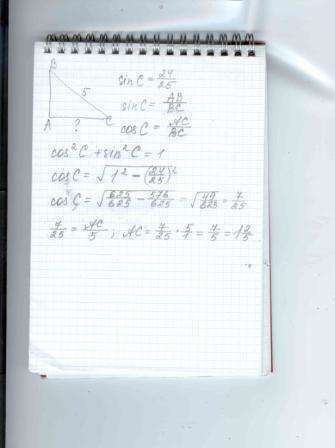 B
sin C = 24/25
5
sin C = AB/BC
A ? C
cos C = AC/BC
cos²C + sin²C = 1
cos C = √(1² − (24/25)²)
cos C = √(625/625 − 576/625) = √(49/625) = 7/25
7/25 = AC/5 ; AC = 7/25 · 5/1 = 7/5 = 1 2/5